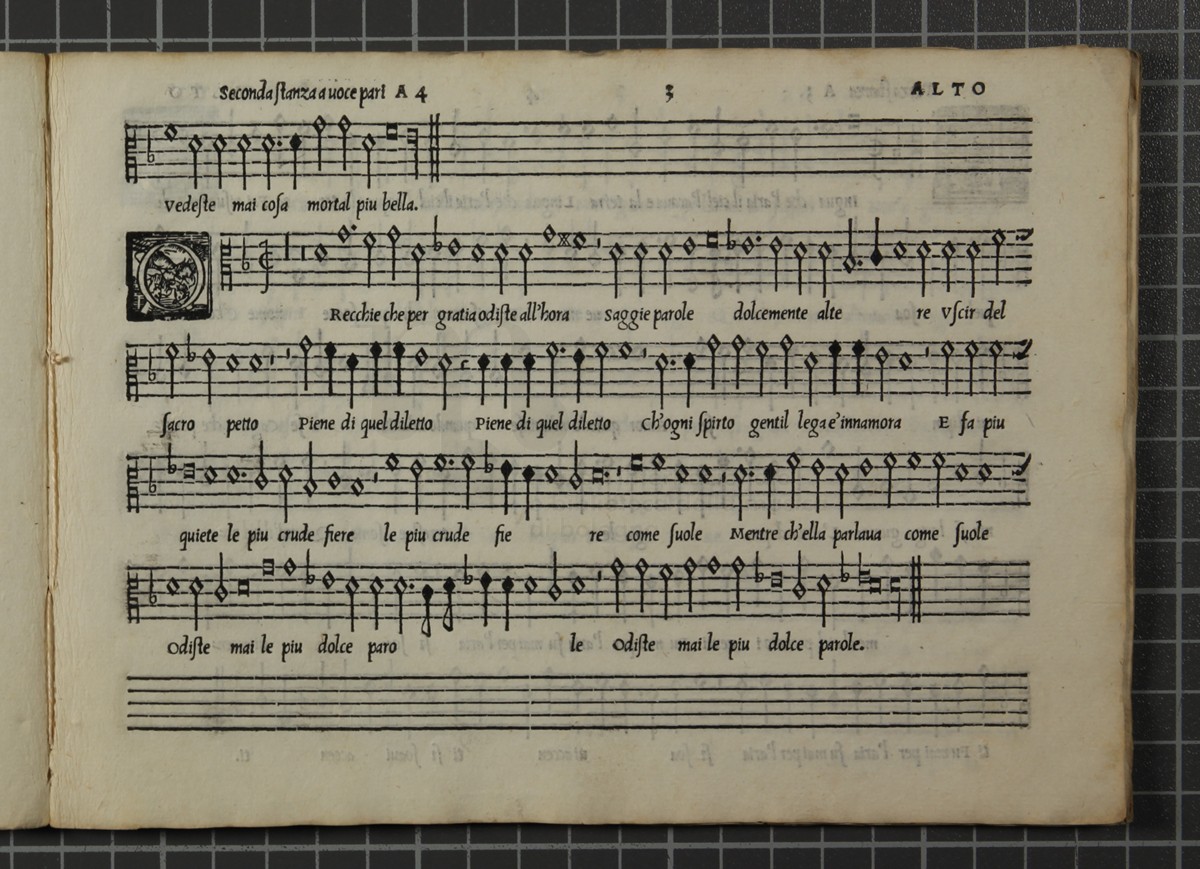 Seconda ſtanza a uoce pari A 4 3 ALTO
Vedeſte mai coſa mortal piu bella.
O Recchie che per gratia odiſte all'hora Saggie parole dolcemente alte re Vſcir del
ſacro petto Piene di quel diletto Piene di quel diletto Ch'ogni ſpirto gentil lega e'innamora E fa piu
quiete le piu crude fiere le piu crude fie re come ſuole Mentre ch'ella parlaua come ſuole
Odiſte mai le piu dolce paro le Odiſte mai le piu dolce parole.